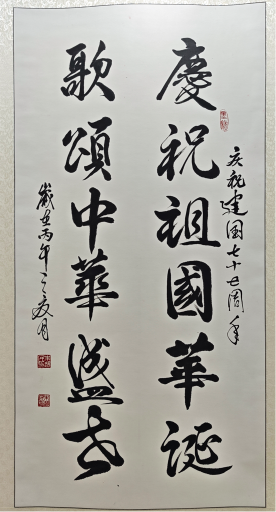 庆祝建国七十七周年
慶祝祖國華誕
歌頌中華盛世
歲在丙午之夏月